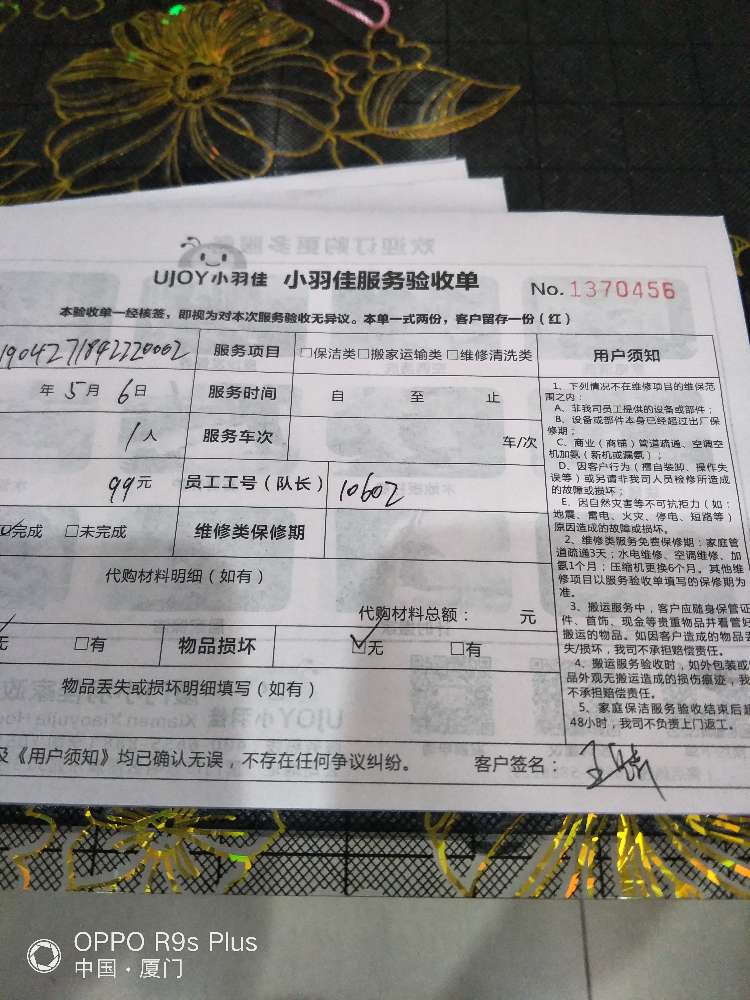 UJOY小羽佳 小羽佳服务验收单 No. 1370456
本验收单一经核签，即视为对本次服务验收无异议。本单一式两份，客户留存一份（红）
1904271842220002 服务项目 □保洁类□搬家运输类□维修清洗类
年 5 月 6 日 服务时间 自 至 止
1 人 服务车次 车/次
99 元 员工工号（队长） 10602
完成 □未完成 维修类保修期
代购材料明细（如有）
代购材料总额： 元
无 □有 物品损坏 ☑无 □有
物品丢失或损坏明细填写（如有）
及《用户须知》均已确认无误，不存在任何争议纠纷。 客户签名：
用户须知
1、下列情况不在维修项目的维保范
围之内：
A、非我司员工提供的设备或部件；
B、设备或部件本身已经超过出厂保
修期；
C、商业（商铺）管道疏通、空调空
机加氨（新机或漏氨）；
D、因客户行为（擅自装卸、操作失
误等）或另请非我司人员检修所造成
的故障或损坏；
E、因自然灾害等不可抗拒力（如：
地震、雷电、火灾、停电、短路等）
原因造成的故障或损坏。
2、维修类服务免费保修期：家庭管
道疏通3天；水电维修、空调维修、加
氨1个月；压缩机更换6个月。其他维
修项目以服务验收单填写的保修期为
准。
3、搬运服务中，客户应随身保管证
件、首饰、现金等贵重物品并看管好
搬运的物品。如因客户造成的物品丢
失/损坏，我司不承担赔偿责任。
4、搬运服务验收时，如外包装或
品外观无搬运造成的损伤痕迹，我
不承担赔偿责任。
5、家庭保洁服务验收结束后超
48小时，我司不负责上门返工。
OPPO R9s Plus
中国·厦门